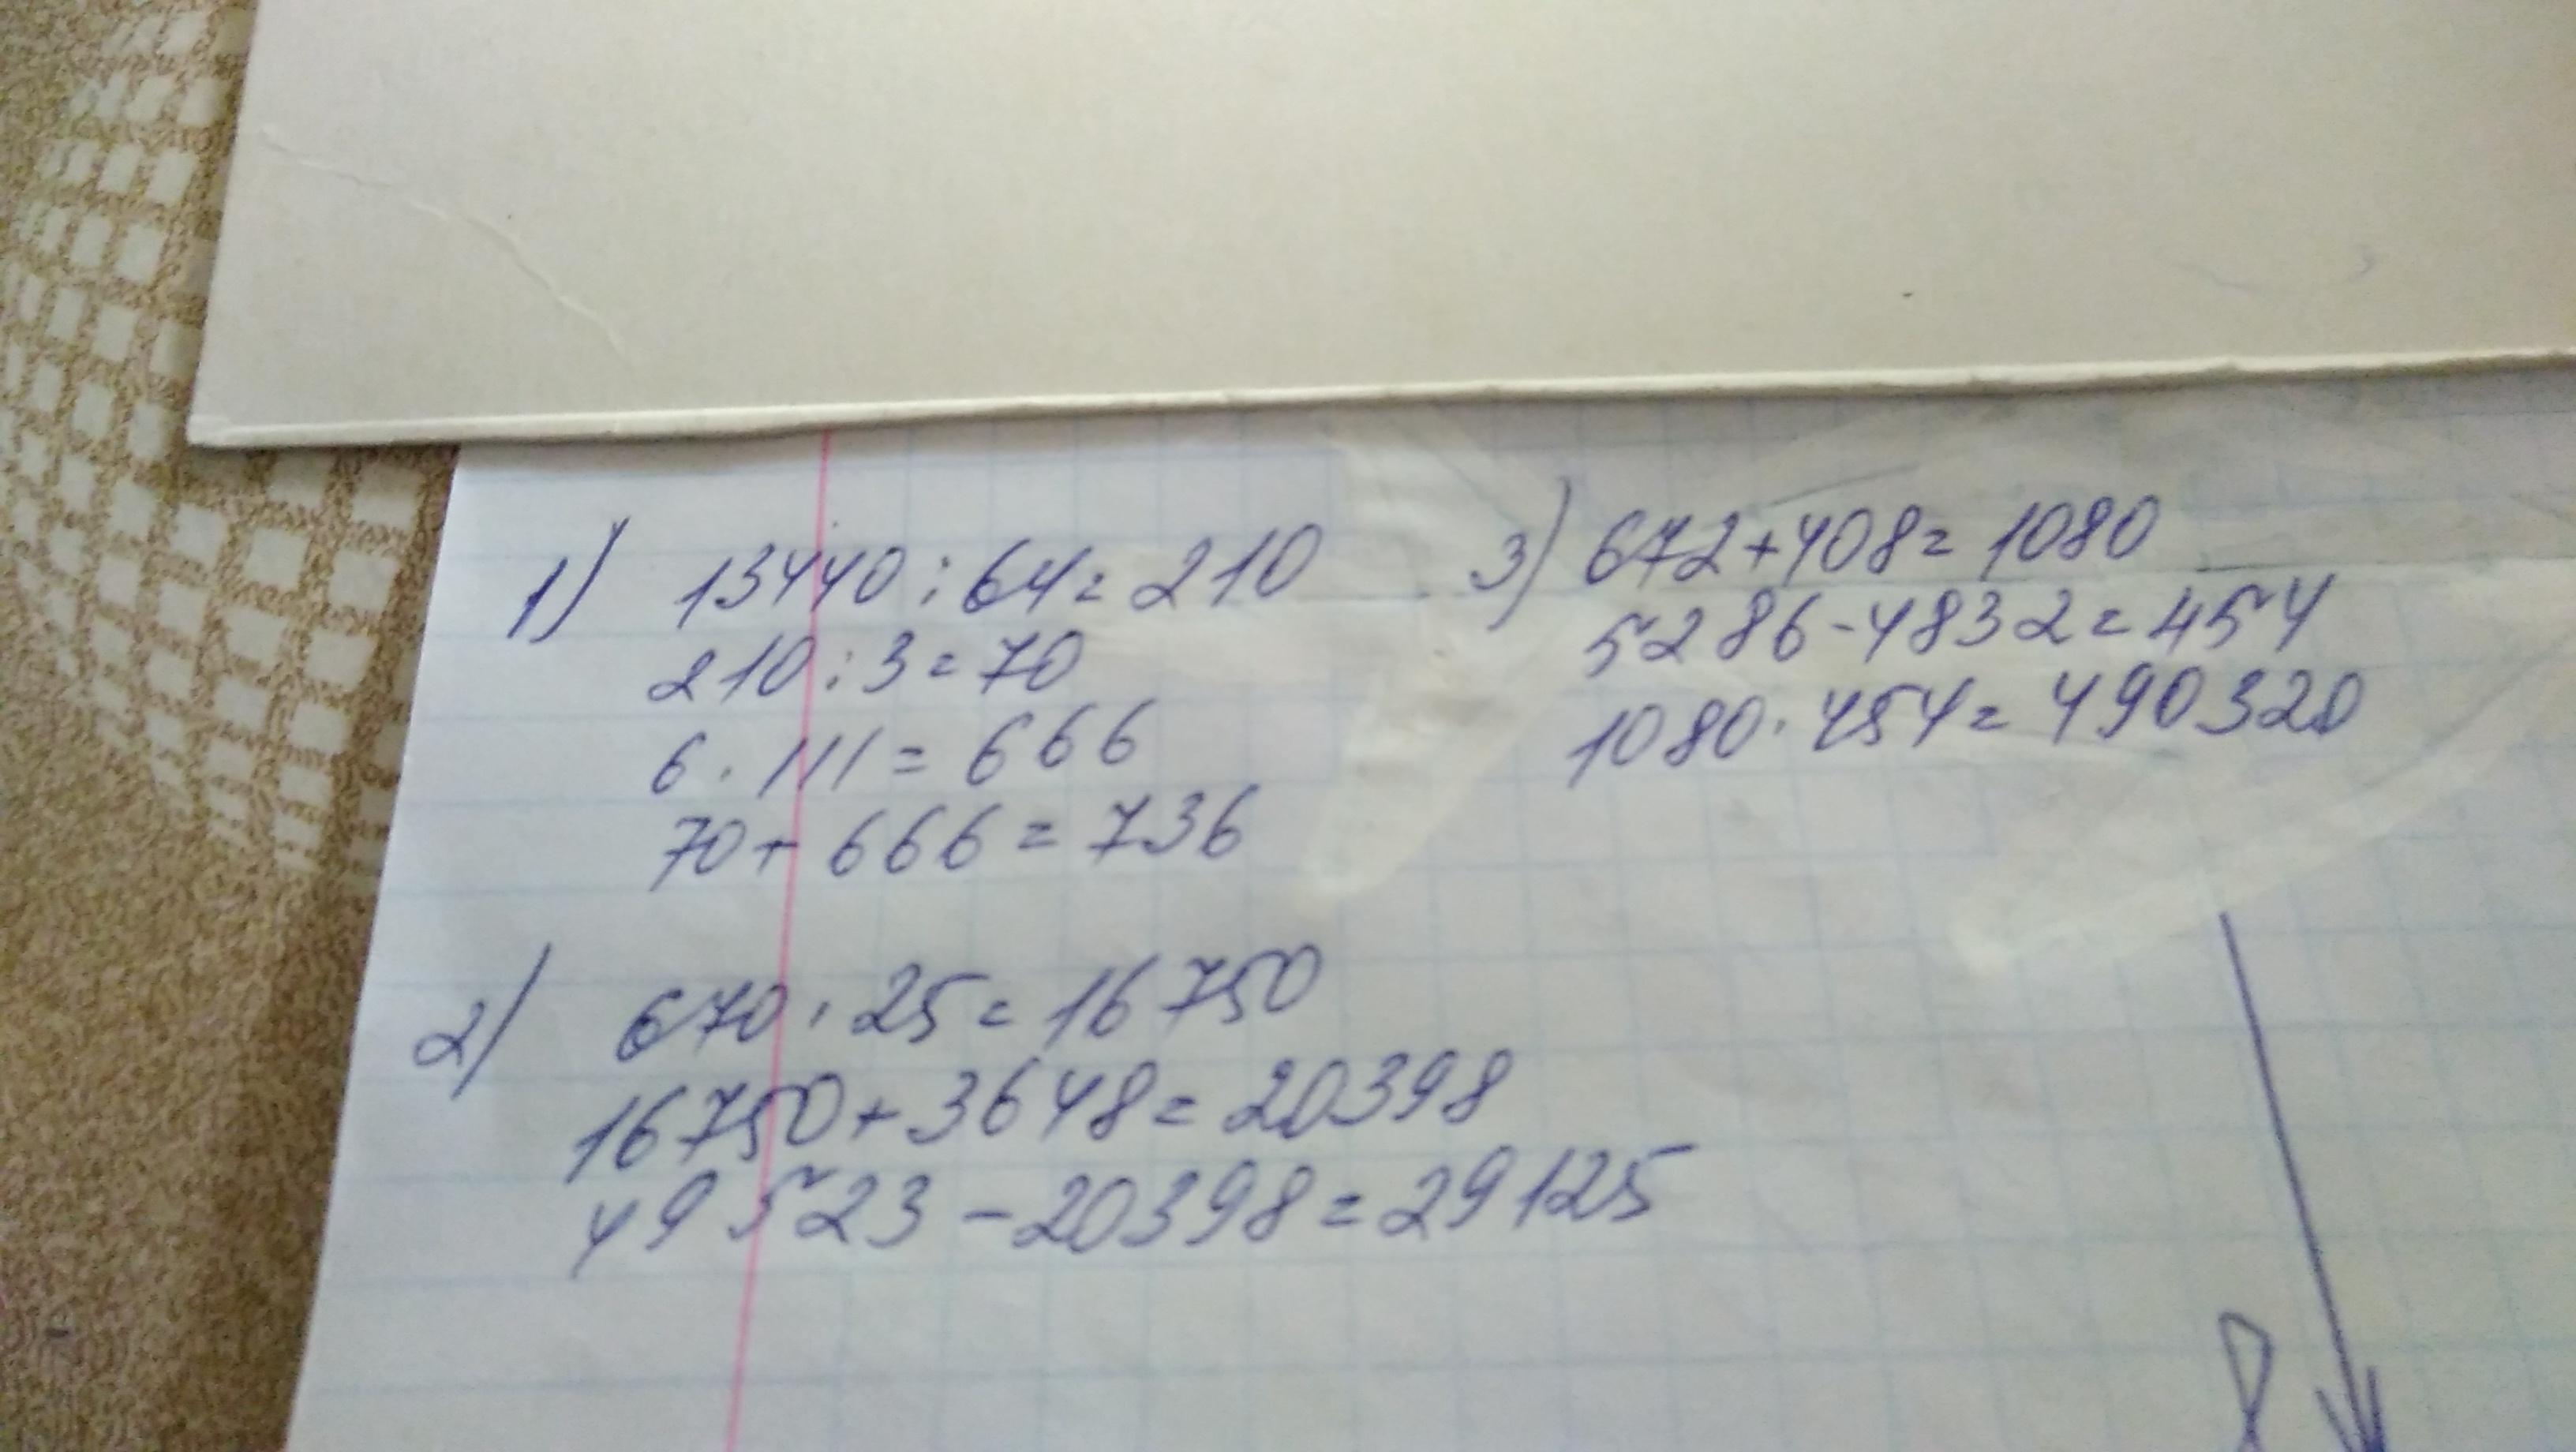 1) 13440 : 64 = 210
210 : 3 = 70
6 · 111 = 666
70 + 666 = 736
2) 670 · 25 = 16750
16750 + 3648 = 20398
49523 - 20398 = 29125
3) 672 + 408 = 1080
5286 - 4832 = 454
1080 · 454 = 490320